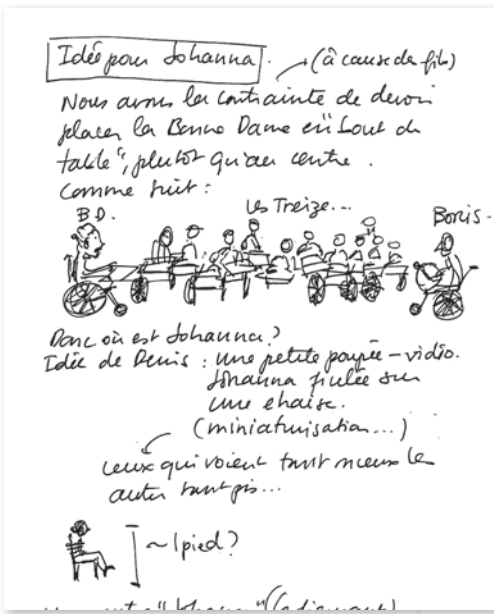 Idée pour Johanna.
(à cause du fil)
Nous avons la contrainte de devoir
placer la Bonne Dame en "bout de
table", plutôt qu'au centre.
Comme suit :
B.D.
Les Treize...
Boris.
Donc où est Johanna ?
Idée de Denis : une petite poupée-vidéo.
Johanna ficelée sur
une chaise.
(miniaturisation...)
ceux qui voient tant mieux les
autres tant pis...
~1 pied ?